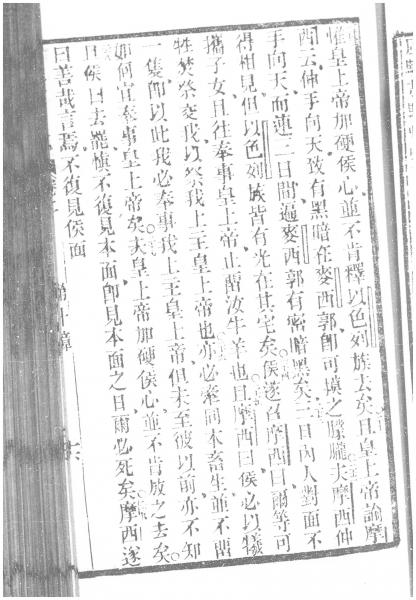 惟皇上帝加硬侯心並不肯釋以色列族去矣且皇上帝諭摩
西云伸手向天致有黑暗在麥西郭卽可摸之朦朧夫摩西伸
手向天而連三日間遍麥西郭有密暗黑矣三日內人對面不
得相見但以色列族皆有光在其宅矣侯遂召摩西曰爾等可
攜子女且往奉事皇上帝止留汝牛羊也且摩西曰侯必以犧
牲焚祭交我以祭我上主皇上帝也亦必牽同本畜生並不留
一隻卽以此我必奉事我上主皇上帝但未至彼以前亦不知
如何宜奉事皇上帝矣夫皇上帝加硬侯心並不肯放之去矣
且侯曰去罷慎不復見本面卽見本面之日爾必死矣摩西遂
曰善哉言焉不復見侯面
第十章